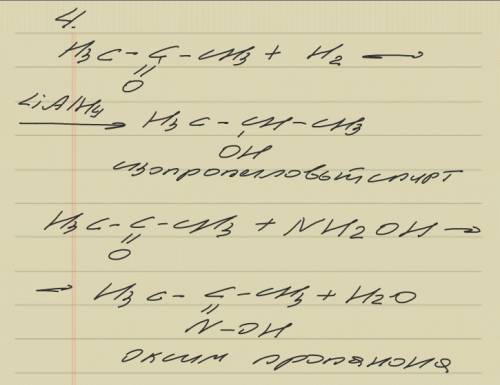 4.
H3C - C - CH3 + H2 →
||
O
LiAlH4
→ H3C - CH - CH3
OH
изопропиловый спирт
H3C - C - CH3 + NH2OH →
||
O
→ H3C - C - CH3 + H2O
||
N-OH
оксим пропанона